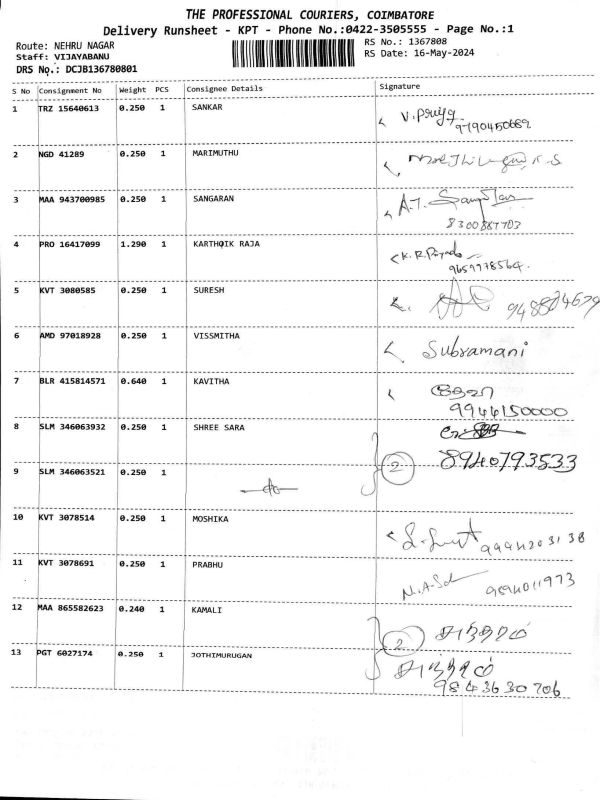 THE PROFESSIONAL COURIERS, COIMBATORE
Delivery Runsheet - KPT - Phone No.:0422-3505555 - Page No.:1
Route: NEHRU NAGAR
Staff: VIJAYABANU
DRS No.: DCJB136780801
RS No.: 1367808
RS Date: 16-May-2024
S No Consignment No Weight PCS Consignee Details Signature
1 TRZ 15640613 0.250 1 SANKAR V. Priya
9790450689
2 NGD 41289 0.250 1 MARIMUTHU
3 MAA 943700985 0.250 1 SANGARAN A.T.
8300887703
4 PRO 16417099 1.290 1 KARTHOIK RAJA K.R.
9659778564
5 KVT 3080585 0.250 1 SURESH
6 AMD 97018928 0.250 1 VISSMITHA Subramani
7 BLR 415814571 0.640 1 KAVITHA
9944150000
8 SLM 346063932 0.250 1 SHREE SARA
2 8940793533
9 SLM 346063521 0.250 1
10 KVT 3078514 0.250 1 MOSHIKA
11 KVT 3078691 0.250 1 PRABHU
9894011973
12 MAA 865582623 0.240 1 KAMALI
2
13 PGT 6027174 0.250 1 JOTHIMURUGAN
9843630706